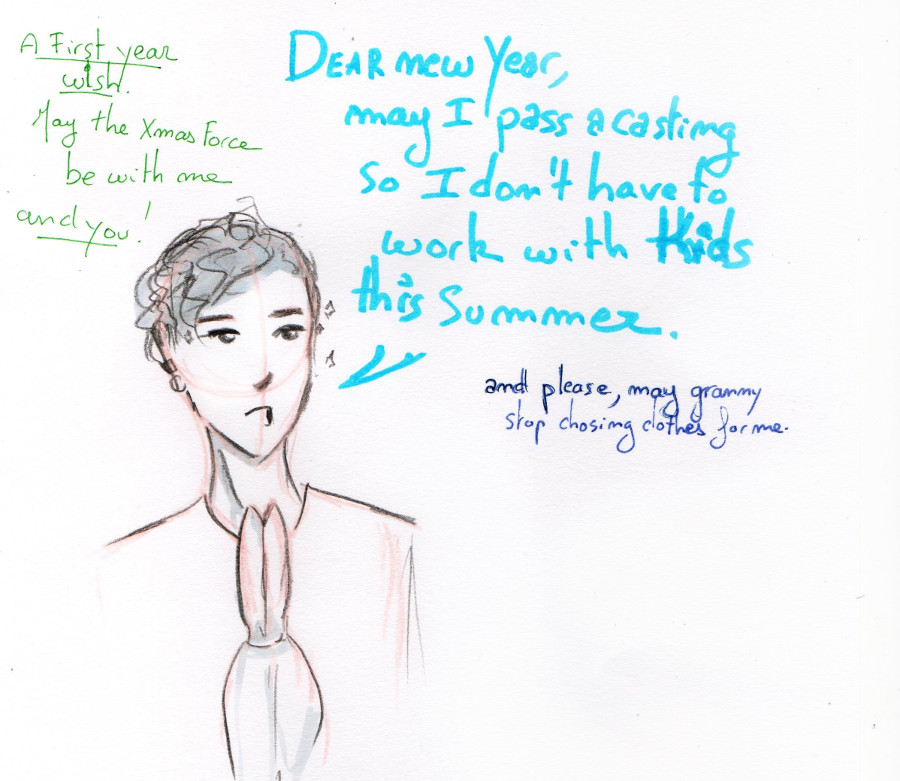 A First year
wish.
May the Xmas Force
be with me
and you!
DEAR new Year,
may I pass a casting
so I don't have to
work with Kids
this Summer.
and please, may granny
stop chosing clothes for me.